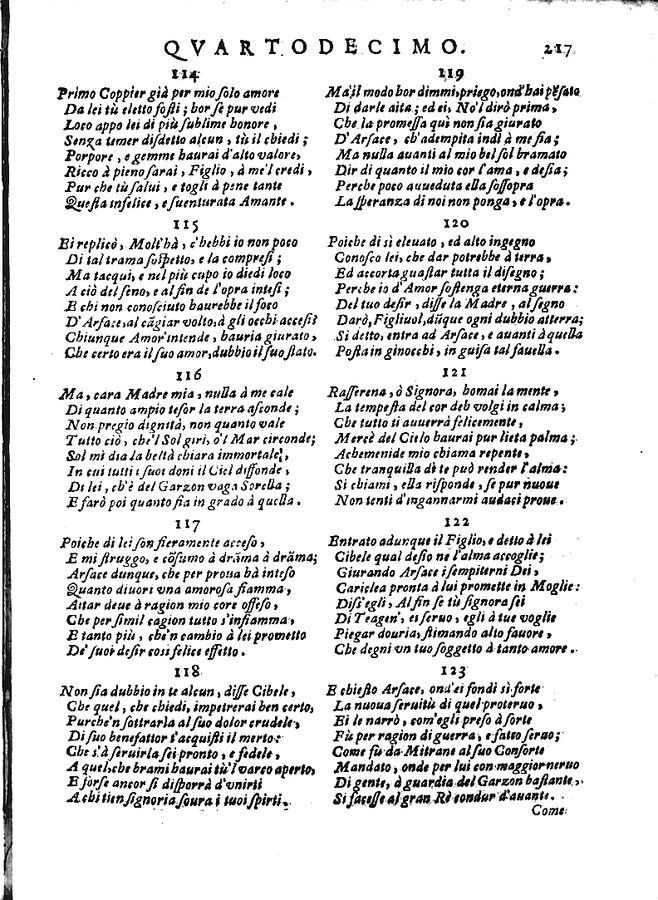 QVARTODECIMO. 217
114
Primo Coppier già per mio ſolo amore
Da lei tù eletto foſti; hor ſe pur vedi
Loco appo lei di più ſublime honore,
Senza temer diſdetto alcun, tù il chiedi;
Porpore, e gemme haurai d'alto valore,
Ricco à pieno ſarai, Figlio, à me'l credi,
Pur che tù ſalui, e togli à pene tante
Queſta infelice, e ſuenturata Amante.
115
Ei replicò, Molt'hà, c'hebbi io non poco
Di tal trama ſoſpetto, e la compreſi;
Ma tacqui, e nel più cupo io diedi loco
A ciò del ſeno, e al fin de l'opra inteſi;
E chi non conoſciuto haurebbe il foco
D'Arſace, al cãgiar volto, à gli occhi acceſi?
Chiunque Amor'intende, hauria giurato,
Che certo era il ſuo amor, dubbio il ſuo ſtato.
116
Ma, cara Madre mia, nulla à me cale
Di quanto ampio teſor la terra aſconde;
Non pregio dignità, non quanto vale
Tutto ciò, che'l Sol giri, o'l Mar circonde;
Sol mi dia la beltà chiara immortale,
In cui tutti i ſuoi doni il Ciel diffonde,
Di lei, ch'è del Garzon vaga Sorella;
E farò poi quanto ſia in grado à quella.
117
Poiche di lei ſon fieramente acceſo,
E mi ſtruggo, e cõſumo à drãma à drãma;
Arſace dunque, che per proua hà inteſo
Quanto diuori vna amoroſa fiamma,
Aitar deue à ragion mio core offeſo,
Che per ſimil cagion tutto s'infiamma,
E tanto più, che'n cambio à lei prometto
De' ſuoi deſir coſi felice effetto.
118
Non ſia dubbio in te alcun, diſſe Cibele,
Che quel, che chiedi, impetrerai ben certo,
Purche'n ſottrarla al ſuo dolor crudele,
Di ſuo benefattor t'acquiſti il merto:
Che s'à ſeruirla ſei pronto, e fedele,
A quel, che brami haurai tù'l varco aperto,
E forſe ancor ſi diſporrà d'vnirti
A chi tien ſignoria ſoura i tuoi ſpirti.
119
Ma il modo hor dimmi, priego, ond'hai pẽſato
Di darle aita; ed ei, No'l dirò prima,
Che la promeſſa quì non ſia giurato
D'Arſace, ch'adempita indi à me ſia;
Ma nulla auanti al mio bel ſol bramato
Dir di quanto il mio cor l'ama, e deſia;
Perche poco auueduta ella ſoſſopra
La ſperanza di noi non ponga, e l'opra.
120
Poiche di sì eleuato, ed alto ingegno
Conoſco lei, che dar potrebbe à terra,
Ed accorta guaſtar tutta il diſegno;
Perche io d'Amor ſoſtenga eterna guerra:
Del tuo deſir, diſſe la Madre, al ſegno
Darò, Figliuol, dũque ogni dubbio atterra;
Sì detto, entra ad Arſace, e auanti à quella
Poſta in ginocchi, in guiſa tal fauella.
121
Raſſerena, ò Signora, homai la mente,
La tempeſta del cor deh volgi in calma;
Che tutto ti auuerrà felicemente,
Mercè del Cielo haurai pur lieta palma;
Achemenide mio chiama repente,
Che tranquilla di te può render l'alma:
Si chiami, ella riſponde, ſe pur nuoue
Non tenti d'ingannarmi audaci proue.
122
Entrato adunque il Figlio, e detto à lei
Cibele qual deſio ne l'alma accoglie;
Giurando Arſace i ſempiterni Dei,
Cariclea pronta à lui promette in Moglie:
Diſs'egli, Al fin ſe tù ſignora ſei
Di Teagen', ei ſeruo, egli à tue voglie
Piegar douria, ſtimando alto fauore,
Che degni vn tuo ſoggetto à tanto amore.
123
E chieſto Arſace, ond'ei fondi sì forte
La nuoua ſeruitù di quel proteruo,
Ei le narrò, com'egli preſo à ſorte
Fù per ragion di guerra, e fatto ſeruo;
Come fù da Mitrane al ſuo Conſorte
Mandato, onde per lui con maggior neruo
Di gente, à guardia del Garzon baſtante,
Si faceſſe al gran Rè condur d'auante.
Come